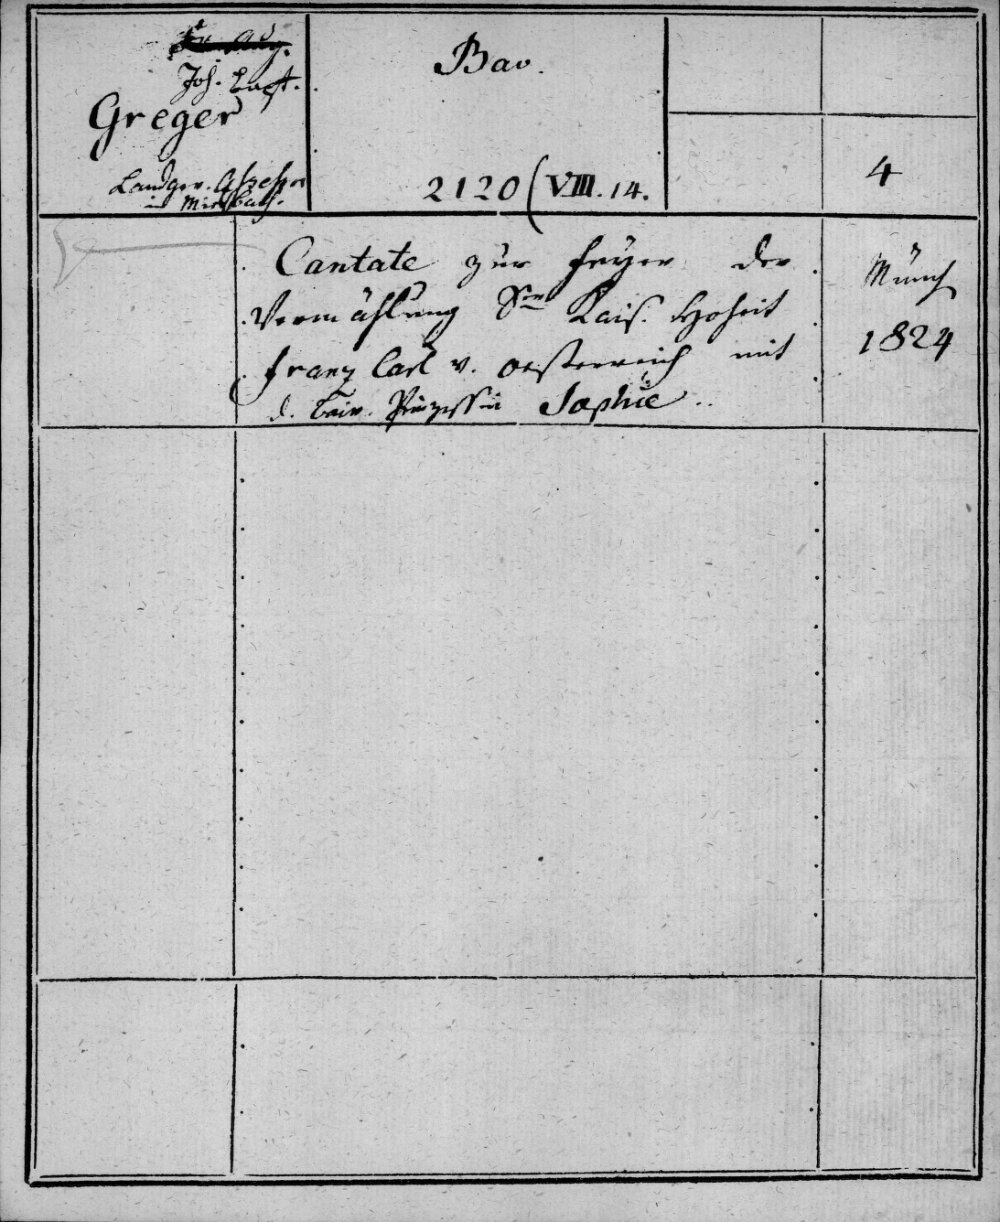 Joh. Bapt.
Greger
Landger. Assessor
in Miesbach.
Bav.
2120 (VIII. 14.
4
Cantate zur Feyer der
Vermählung Sr Kais. Hoheit
Franz Carl v. Oesterreich mit
d. bair. Prinzessin Sophie..
Münch
1824